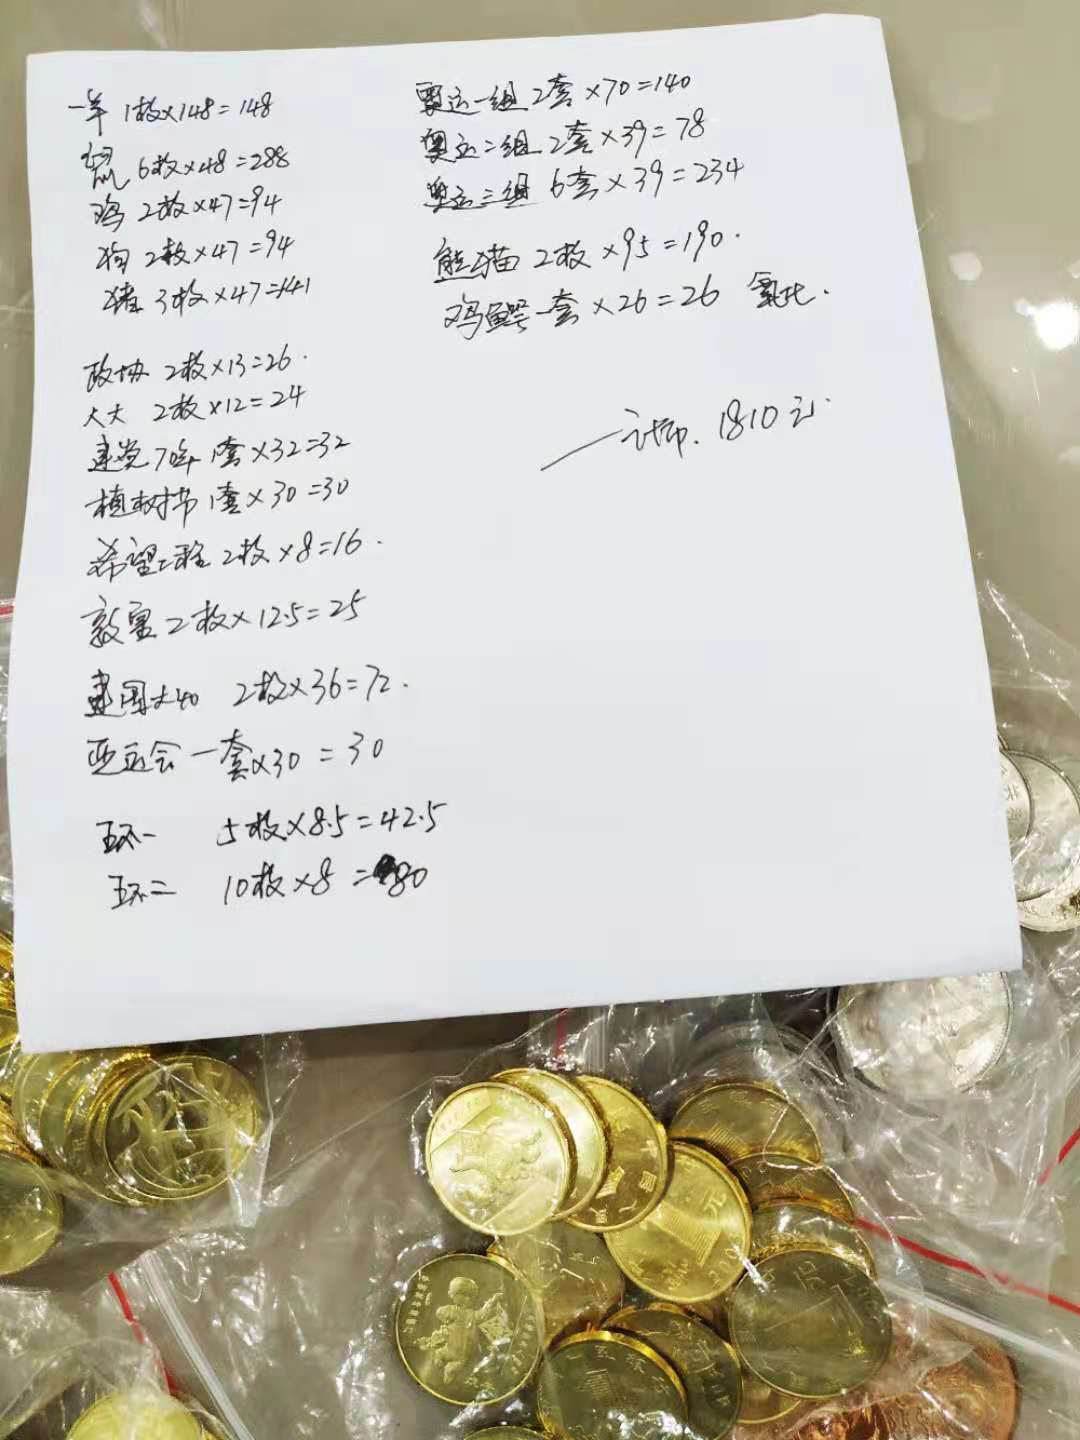 一羊 1枚×148=148
鼠 6枚×48=288
鸡 2枚×47=94
狗 2枚×47=94
猪 3枚×47=141
政协 2枚×13=26.
人大 2枚×12=24
建党70年 1套×32=32
植树节 1套×30=30
希望工程 2枚×8=16.
敦煌 2枚×12.5=25
建国大40 2枚×36=72.
亚运会 一套×30=30
五环一 5枚×8.5=42.5
五环二 10枚×8=80
奥运一组 2套×70=140
奥运二组 2套×39=78
奥运三组 6套×39=234
熊猫 2枚×95=190.
鸡鳄一套×26=26 氧化.
计币. 1810元.
元